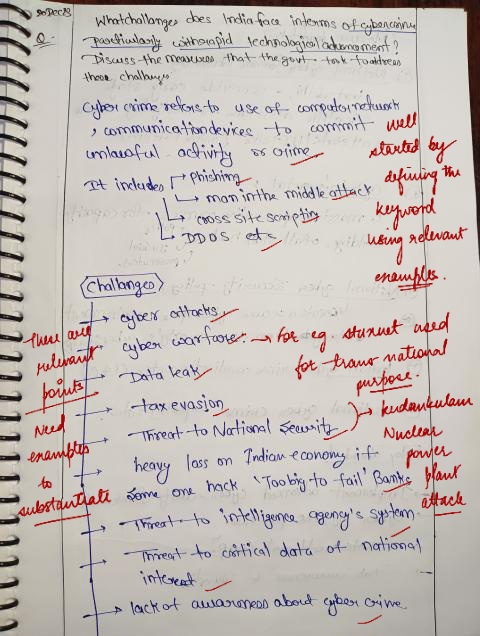 30 Dec 23
Q. What challanges does India face interms of cybercrime
particularly with rapid technological advancement?
Discuss the measures that the govt took to address
these challanges
Cyber crime refers to use of computer network
, communication devices to commit
unlawful activity or crime
It includes
Phishing
man in the middle attack
cross site scripting
DDOS etc
well
started by
defining the
keyword
using relevant
examples.
Challanges
cyber attacks
cyber warfare:
Data leak
tax evasion
Threat to National Security
heavy loss on Indian economy if
some one hack 'Too big to fail' Banks
Threat to intelligence agency's system
Threat to critical data of national
interest
lack of awareness about cyber crime.
For eg. stuxnet used
for trans national
purpose.
kudankulam
Nuclear
power
plant
attack
These are
relevant
points
Need
examples
to
substantiate